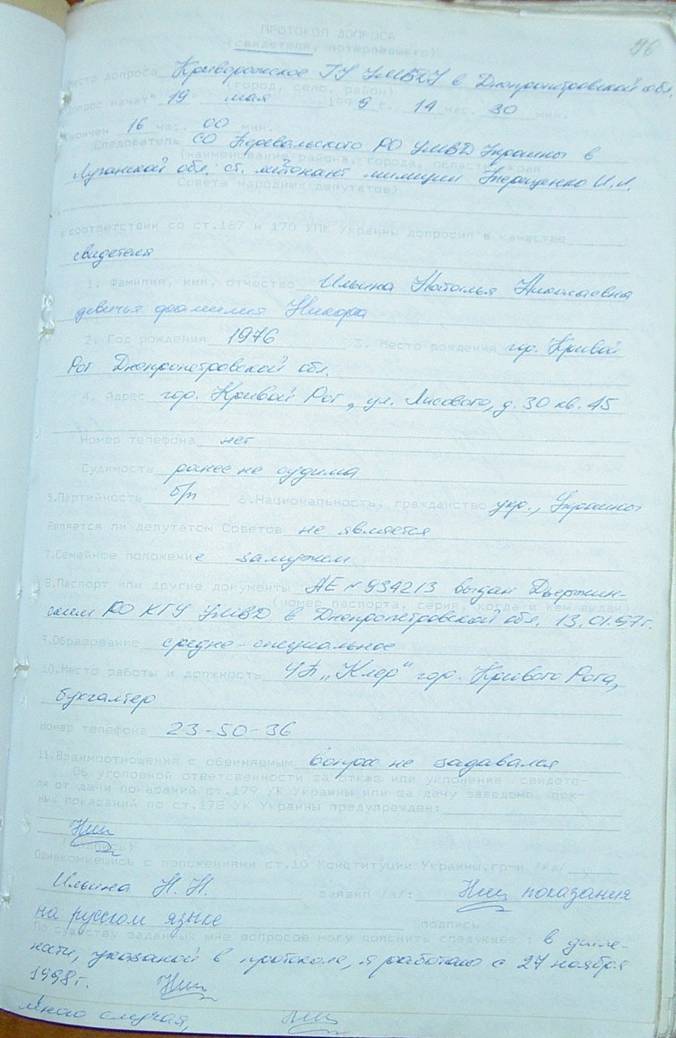 96
ПРОТОКОЛ ДОПРОСА
(свидетеля, потерпевшего)
Место допроса Криворожское ГУ УМВДУ в Днепропетровской обл.
(город, село, район)
Допрос начат " 19 мая 199 9 г. 14 час. 30 мин.
Окончен 16 час. 00 мин.
Следователь СО Перевальского РО УМВД Украины в
(наименование района, города, области
Луганской обл. ст. лейтенант милиции Терещенко И.И.
Совета народных депутатов)
в соответствии со ст.167 и 170 УПК Украины допросил в качестве
свидетеля
1. Фамилия, имя, отчество Ильина Наталья Николаевна
девичья фамилия Никора
2. Год рождения 1976 3. Место рождения гор. Кривой
Рог Днепропетровской обл.
4. Адрес гор. Кривой Рог, ул. Лисового, д. 30 кв. 45
Номер телефона нет
Судимость ранее не судима
5.Партийность б/п 6.Национальность, гражданство укр., Украины
Является ли депутатом Советов не является
7.Семейное положение замужем
8.Паспорт или другие документы АЕ № 934213 выдан Дзержин-
(номер паспорта, серия, когда и кем выдан)
ским РО КГУ УМВД в Днепропетровской обл. 13.01.97г.
9.Образование средне-специальное
10.Место работы и должность ЧП „Клер" гор. Кривого Рога,
бухгалтер
Номер телефона 23-50-36
11.Взаимоотношения с обвиняемым вопрос не задавался
Об уголовной ответственности за отказ или уклонение свидете-
ля от дачи показаний ст.179 УК Украины или за дачу заведомо лож-
ных показаний по ст.178 УК Украины предупрежден:
Ознакомившись с положениями ст.10 Конституции Украины,гр-н /ка/
Ильина Н.Н. заявил /а/: показания
на русском языке подпись
По существу заданных мне вопросов могу пояснить следующее: в
ности, указаной в протоколе, я работаю с 27 ноября
1998г.
случая,